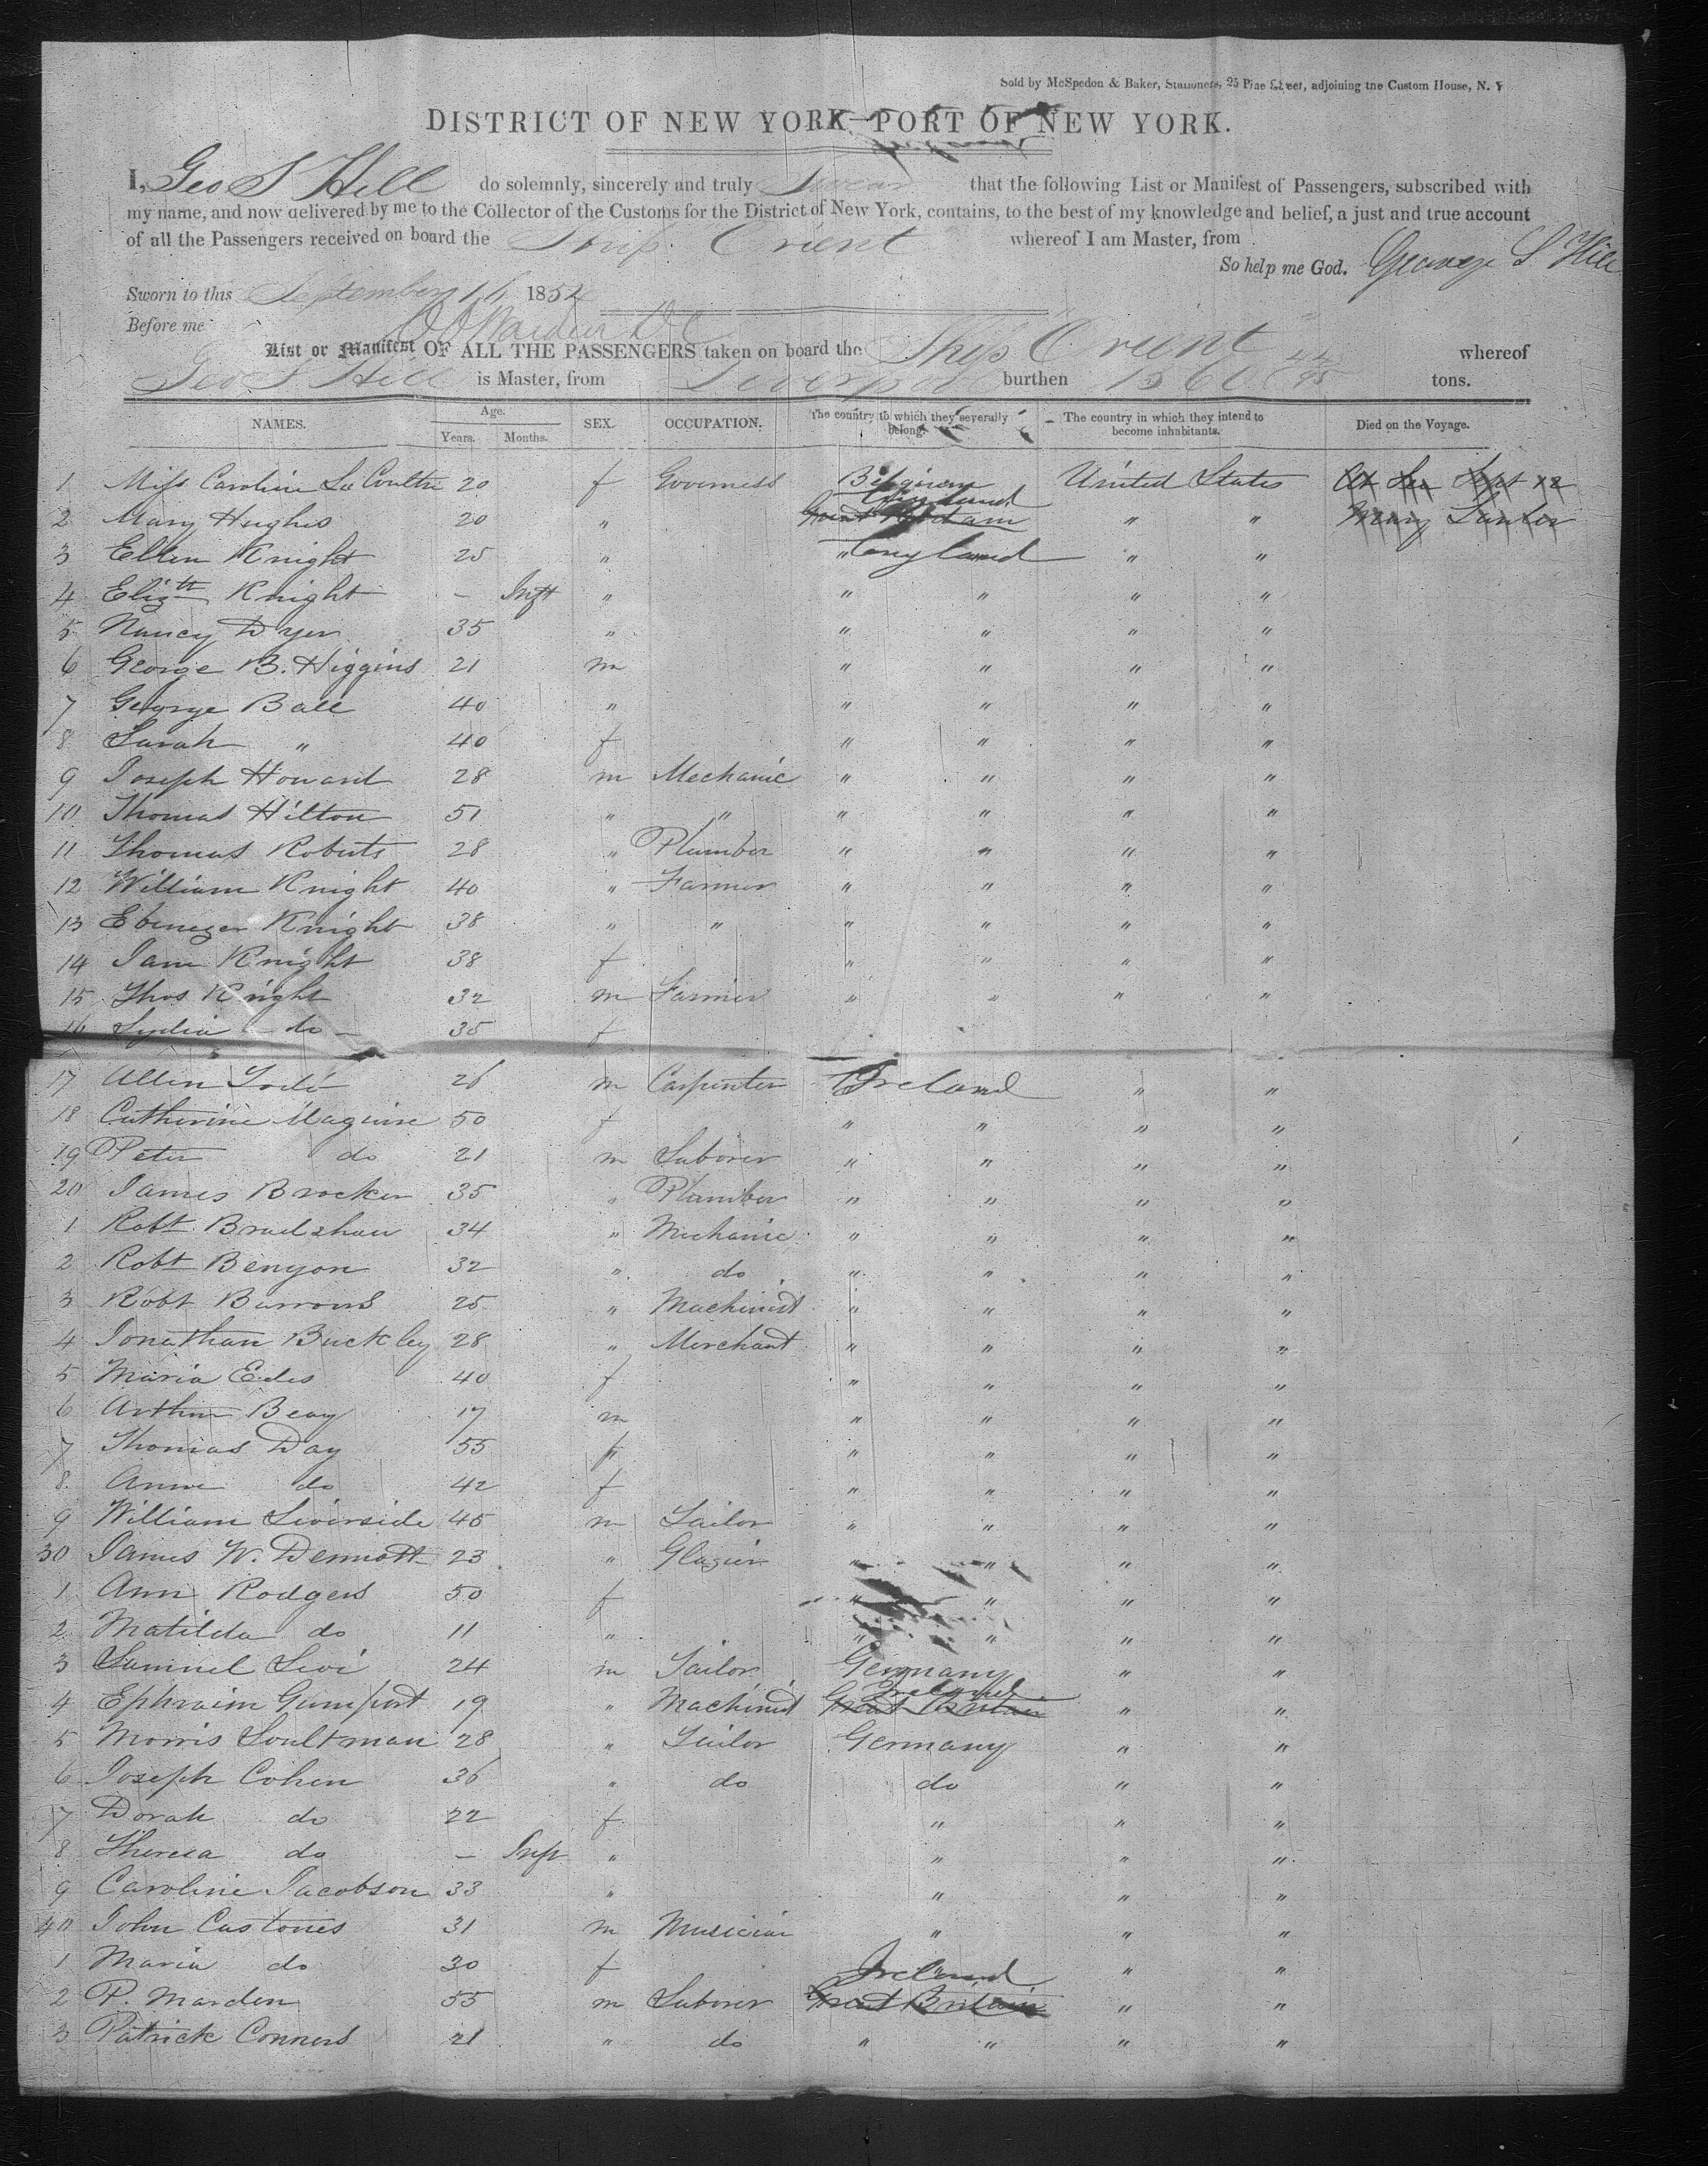 Sold by McSpedon & Baker, Stationers, 25 Pine Street, adjoining the Custom House, N. Y
DISTRICT OF NEW YORK—PORT OF NEW YORK.
I, Geo S Hill do solemnly, sincerely and truly Swear that the following List or Manifest of Passengers, subscribed with
my name, and now delivered by me to the Collector of the Customs for the District of New York, contains, to the best of my knowledge and belief, a just and true account
of all the Passengers received on board the Ship Orient whereof I am Master, from
So help me God. George S Hill
Sworn to this September 16 1854
Before me
List or Manifest OF ALL THE PASSENGERS taken on board the Ship Orient whereof
Geo S Hill is Master, from Liverpool burthen 1560 44/95 tons.
NAMES. Age. Years. Months. SEX. OCCUPATION. The country to which they severally belong. The country in which they intend to become inhabitants. Died on the Voyage.
1 Miss Caroline La Coultre 20 f Governess Belgium United States At Sea Sept 12
2 Mary Hughes 20 " England Great Britain " " Mary
3 Ellen Knight 25 " " England " "
4 Elizth Knight – Inft " " " " "
5 Nancy Dyer 35 " " " " "
6 George B. Higgins 21 m " " " "
7 George Ball 40 " " " " "
8 Sarah " 40 f " " " "
9 Joseph Howard 28 m Mechanic " " " "
10 Thomas Hilton 51 " " " " " "
11 Thomas Roberts 28 " Plumber " " " "
12 William Knight 40 " Farmer " " " "
13 Ebenezer Knight 38 " " " " " "
14 Jane Knight 38 f " " " "
15 Thos Knight 32 m Farmer " " " "
16 Lydia do 35 f
17 Allen 26 m Carpenter Ireland " "
18 Catherine Maguire 50 f " " " "
19 Peter do 21 m Laborer " " " "
20 James Brocker 35 " Plumber " " " "
1 Robt Bradshaw 34 " Mechanic " " " "
2 Robt Benyon 32 " do " " " "
3 Robt Barrows 25 " Machinist " " " "
4 Jonathan Buckley 28 " Merchant " " " "
5 Maria Eeles 40 f " " " "
6 Arthur Beay 17 m " " " "
7 Thomas Day 55 " " " "
8 Anne do 42 f " " " "
9 William Liverside 45 m Tailor " " " "
30 James W. Dermott 23 " Glazier " " " "
1 Ann Rodgers 50 f " " " "
2 Matilda do 11 " " " " "
3 Samuel Levi 24 m Tailor Germany " "
4 Ephraim Gumport 19 " Machinist Ireland Great Britain " "
5 Morris Soultman 28 " Tailor Germany " "
6 Joseph Cohen 36 " do do " "
7 Dorah do 22 f " " "
8 Theresa do – Inft " " " "
9 Caroline Jacobson 33 " " " "
40 John Customes 31 m Musician " " "
1 Maria do 30 f " " "
2 P. Marden 55 m Laborer Ireland Great Britain " "
3 Patrick Conners 21 " do " " " "